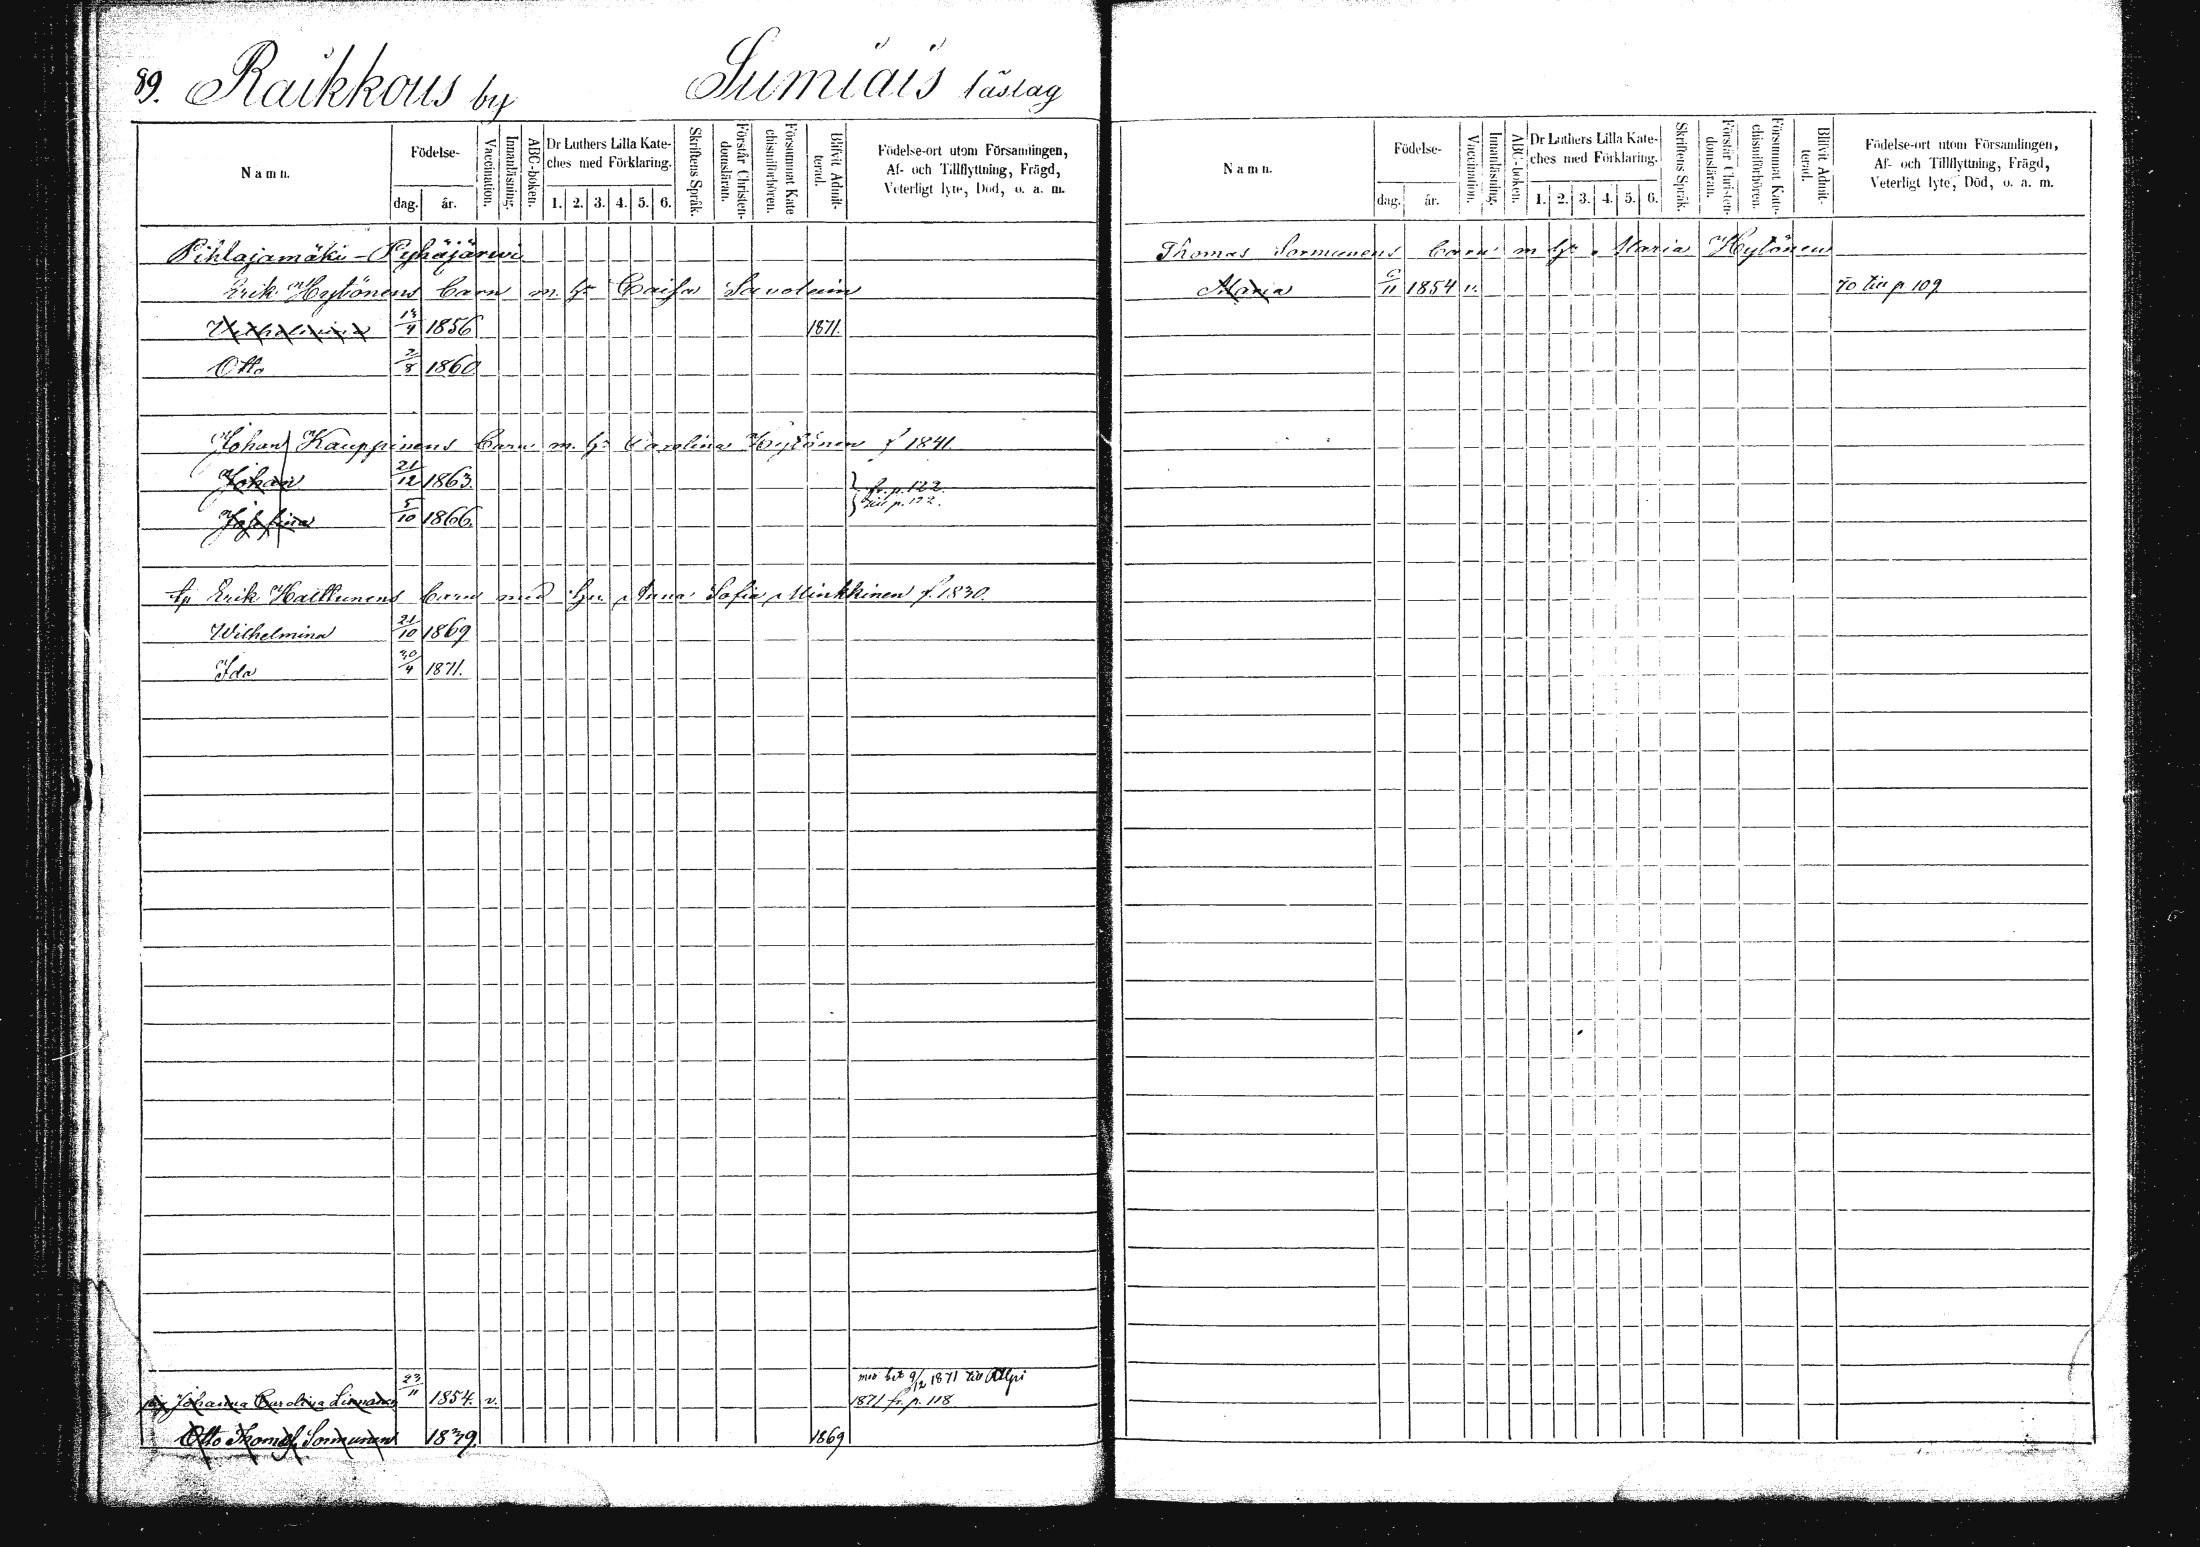 89. Raikkous by Sumiais läslag
Namn.
Födelse-
dag. år.
Vaccination.
Innanläsning.
ABC-boken.
Dr Luthers Lilla Kate-
ches med Förklaring.
1. 2. 3. 4. 5. 6.
Skriftens Språk.
Förstår Christen-
domsläran.
Försummat Kate
chismiförhören.
Blifvit Admit-
terad.
Födelse-ort utom Församlingen,
Af- och Tillflyttning, Frägd,
Veterligt lyte, Död, o. a. m.
Pihlajamäki - Pyhäjärwi
Erik Hytönens Barn m. h: Caisa Savolain
Wilhelmina 13/4 1856 1871.
Otto 2/8 1860
Johan Kauppinens Barn m. h: Carolina Hytönen f 1841.
Johan 21/12 1863. fr. p. 122.
Josefina 5/10 1866. till p. 122.
Erik Hallunens barn med hu Anna Sofia Minkkinen f. 1830.
Wilhelmina 21/10 1869
Ida 30/4 1871.
med bet 9/12 1871 till
Johanna Carolina Linnanen 23/11 1854. v. 1871 fr. p. 118
Otto Thomas. Sormunen 1849. 1869
Namn.
Födelse-
dag. år.
Vaccination.
Innanläsning.
ABC-boken.
Dr Luthers Lilla Kate-
ches med Förklaring.
1. 2. 3. 4. 5. 6.
Skriftens Språk.
Förstår Christen-
domsläran.
Försummat Kate-
chismiförhören.
Blifvit Admit-
terad.
Födelse-ort utom Församlingen,
Af- och Tillflyttning, Frägd,
Veterligt lyte, Död, o. a. m.
Thomas Sormunens Barn m h: Maria Hytönen
Maria 1854 v. 70 till p 109